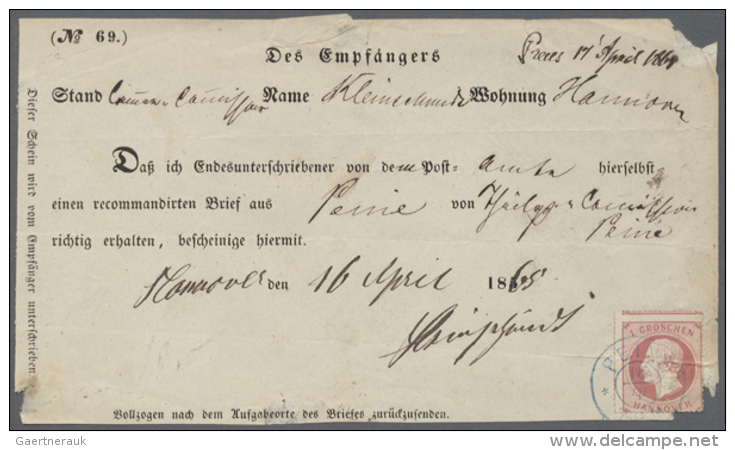 (№ 69.)
Des Empfängers
17 April 1865
Stand Name Kleinschmidt Wohnung Hannover
Daß ich Endesunterschriebener von dem Post-amte hierselbst
einen recommandirten Brief aus Peine von
Peine
richtig erhalten, bescheinige hiermit.
Hannover den 16 April 1865
Kleinschmidt
Vollzogen nach dem Aufgabeorte des Briefes zurückzusenden.
Dieser Schein wird vom Empfänger unterschrieben.
1 GROSCHEN
HANNOVER
PE
Gaertnerauk
www.delcampe.net